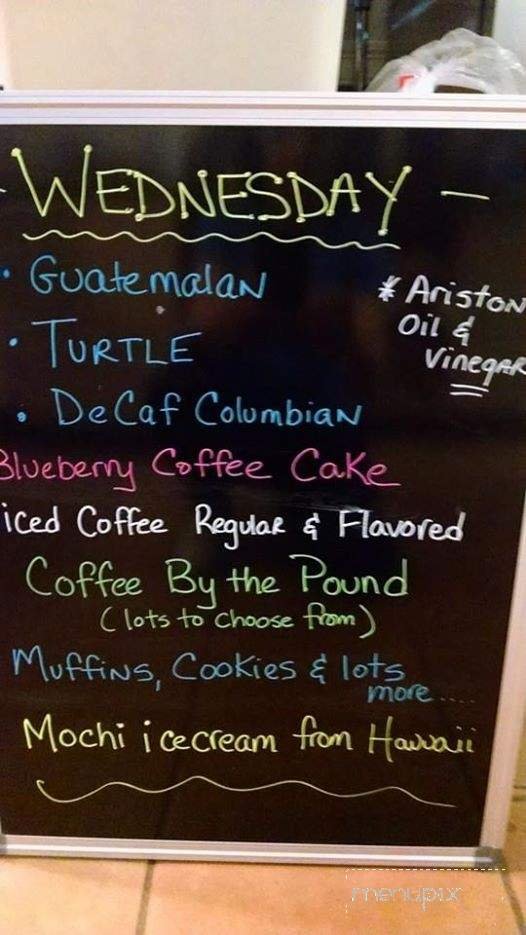 - WEDNESDAY -
• Guatemalan
• TURTLE
• DeCaf Columbian
* Ariston
Oil &
Vinegar
Blueberry Coffee Cake
iced Coffee Regular & Flavored
Coffee By the Pound
(lots to choose from)
Muffins, Cookies & lots
more....
Mochi icecream from Hawaii
menupix